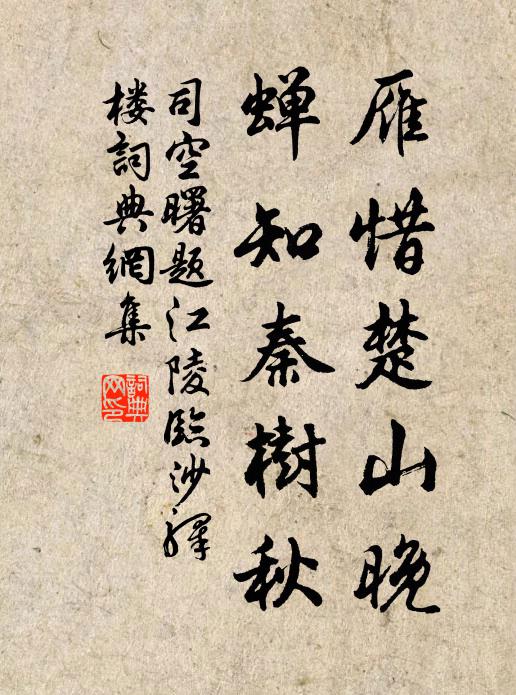 雁惜楚山晚
蝉知秦樹秋
司空曙題江陵臨沙驛
楼詞典網集
詞典网印